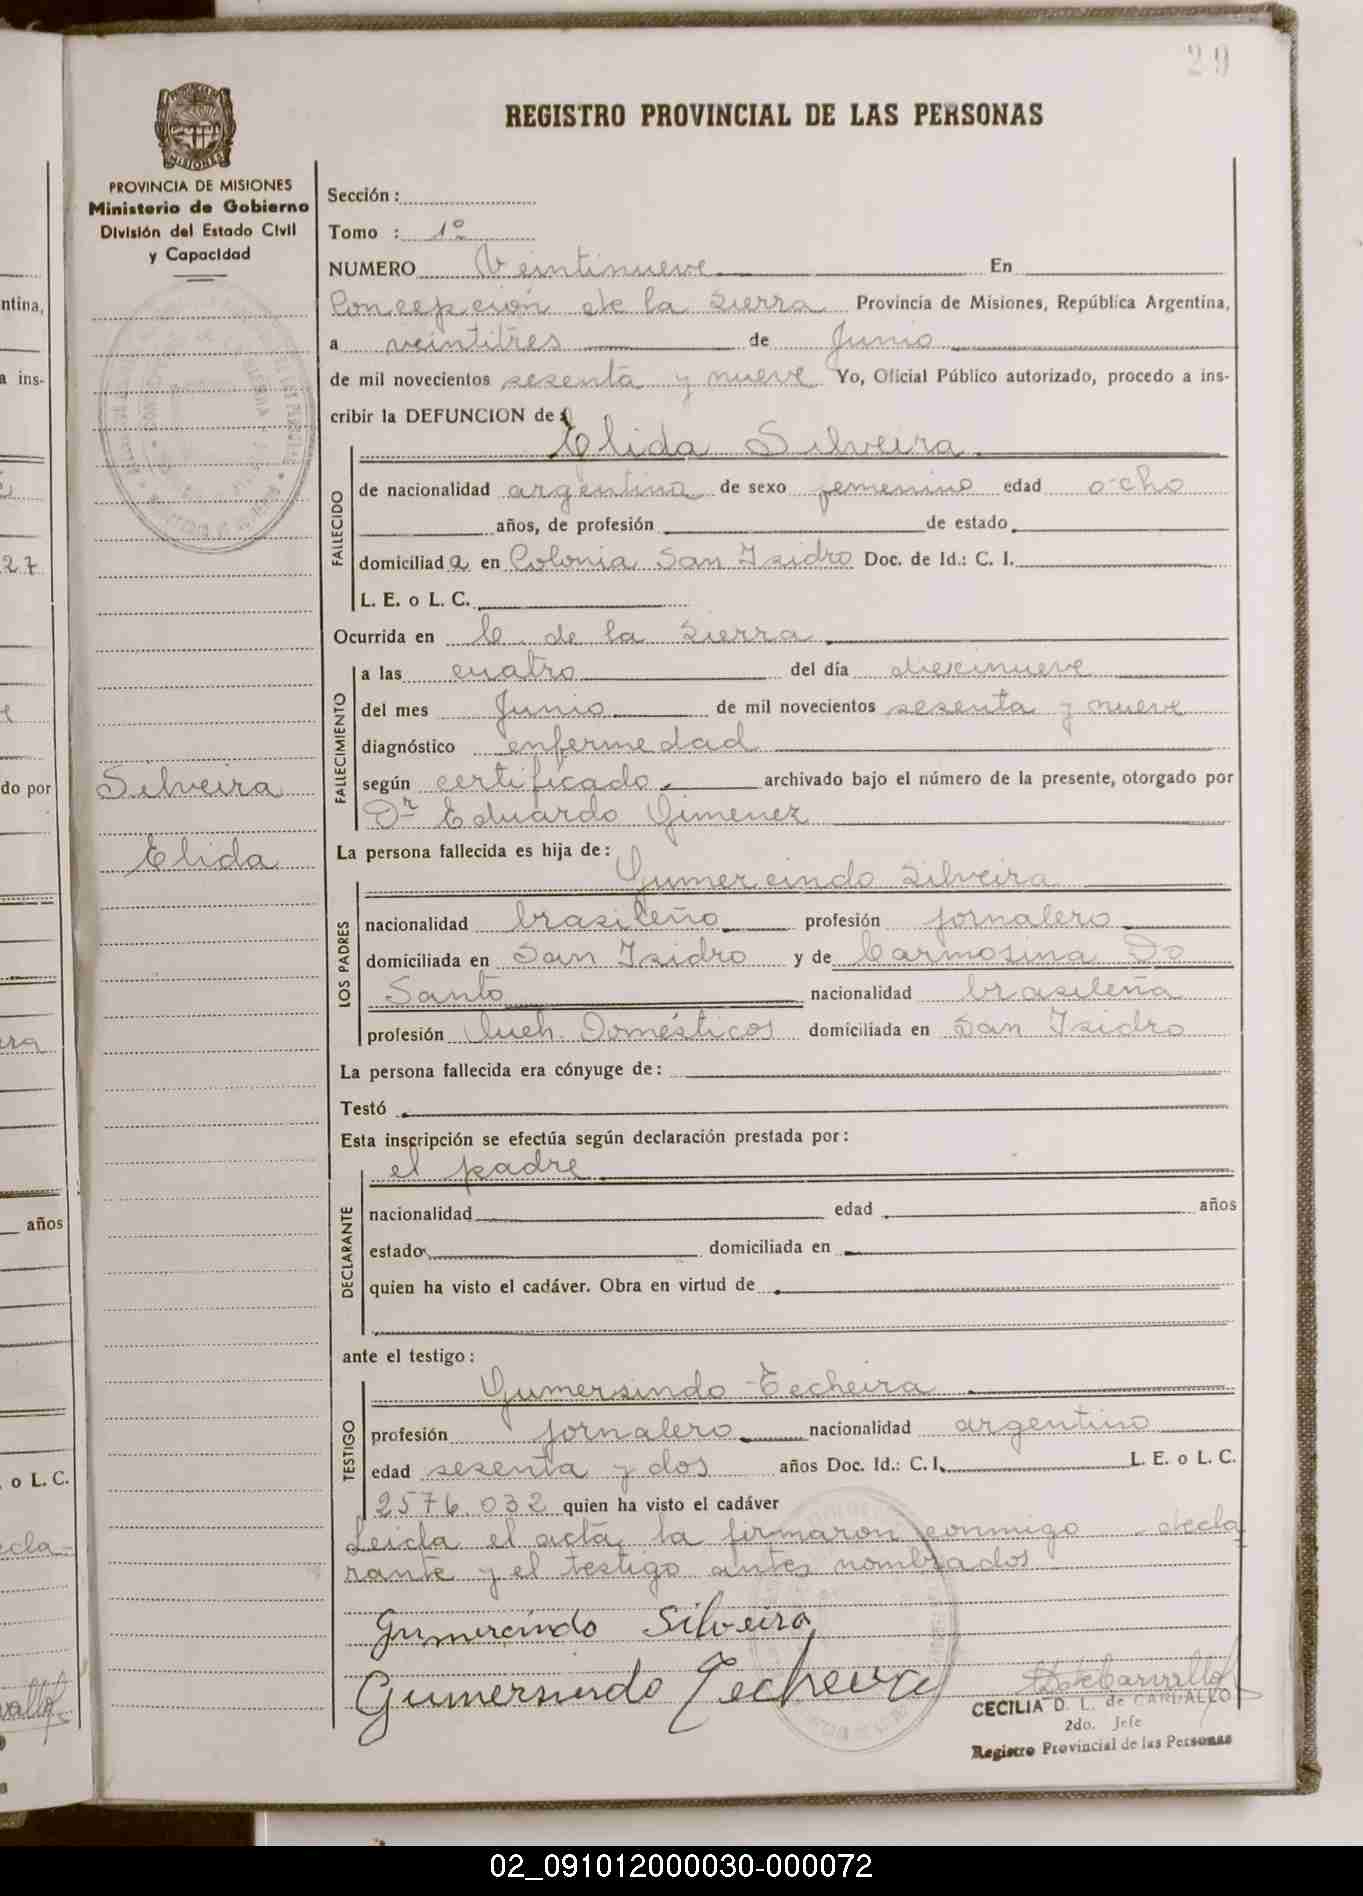 29
REGISTRO PROVINCIAL DE LAS PERSONAS
PROVINCIA DE MISIONES
Ministerio de Gobierno
División del Estado Civil
y Capacidad
Silveira
Elida
Sección :
Tomo : 1º
NUMERO Veintinueve En
Concepción de la Sierra Provincia de Misiones, República Argentina,
a veintitres de Junio
de mil novecientos sesenta y nueve Yo, Oficial Público autorizado, procedo a ins-
cribir la DEFUNCION de
Elida Silveira
FALLECIDO
de nacionalidad argentina de sexo femenino edad ocho
años, de profesión de estado
domiciliada en Colonia San Isidro Doc. de Id.: C. I.
L. E. o L. C.
Ocurrida en C. de la Sierra
FALLECIMIENTO
a las cuatro del día diecinueve
del mes Junio de mil novecientos sesenta y nueve
diagnóstico enfermedad
según certificado archivado bajo el número de la presente, otorgado por
Dr Eduardo Gimenez
La persona fallecida es hija de:
LOS PADRES
Gumercindo Silveira
nacionalidad brasileño profesión jornalero
domiciliada en San Isidro y de Carmosina Do
Santo nacionalidad brasileña
profesión Queh. Domésticos domiciliada en San Isidro
La persona fallecida era cónyuge de:
Testó
Esta inscripción se efectúa según declaración prestada por:
DECLARANTE
el padre
nacionalidad edad años
estado domiciliada en
quien ha visto el cadáver. Obra en virtud de
ante el testigo:
TESTIGO
Gumersindo Techeira
profesión jornalero nacionalidad argentino
edad sesenta y dos años Doc. Id.: C. I. L. E. o L. C.
2576.032 quien ha visto el cadáver
Leida el acta, la firmaron conmigo decla
rante y el testigo antes nombrados
Gumercindo Silveira
Gumersindo Techeira
CECILIA D. L. de CARBALLO
2do. Jefe
Registro Provincial de las Personas
ntina,
a ins-
27
do por
años
o L. C.
02_091012000030-000072